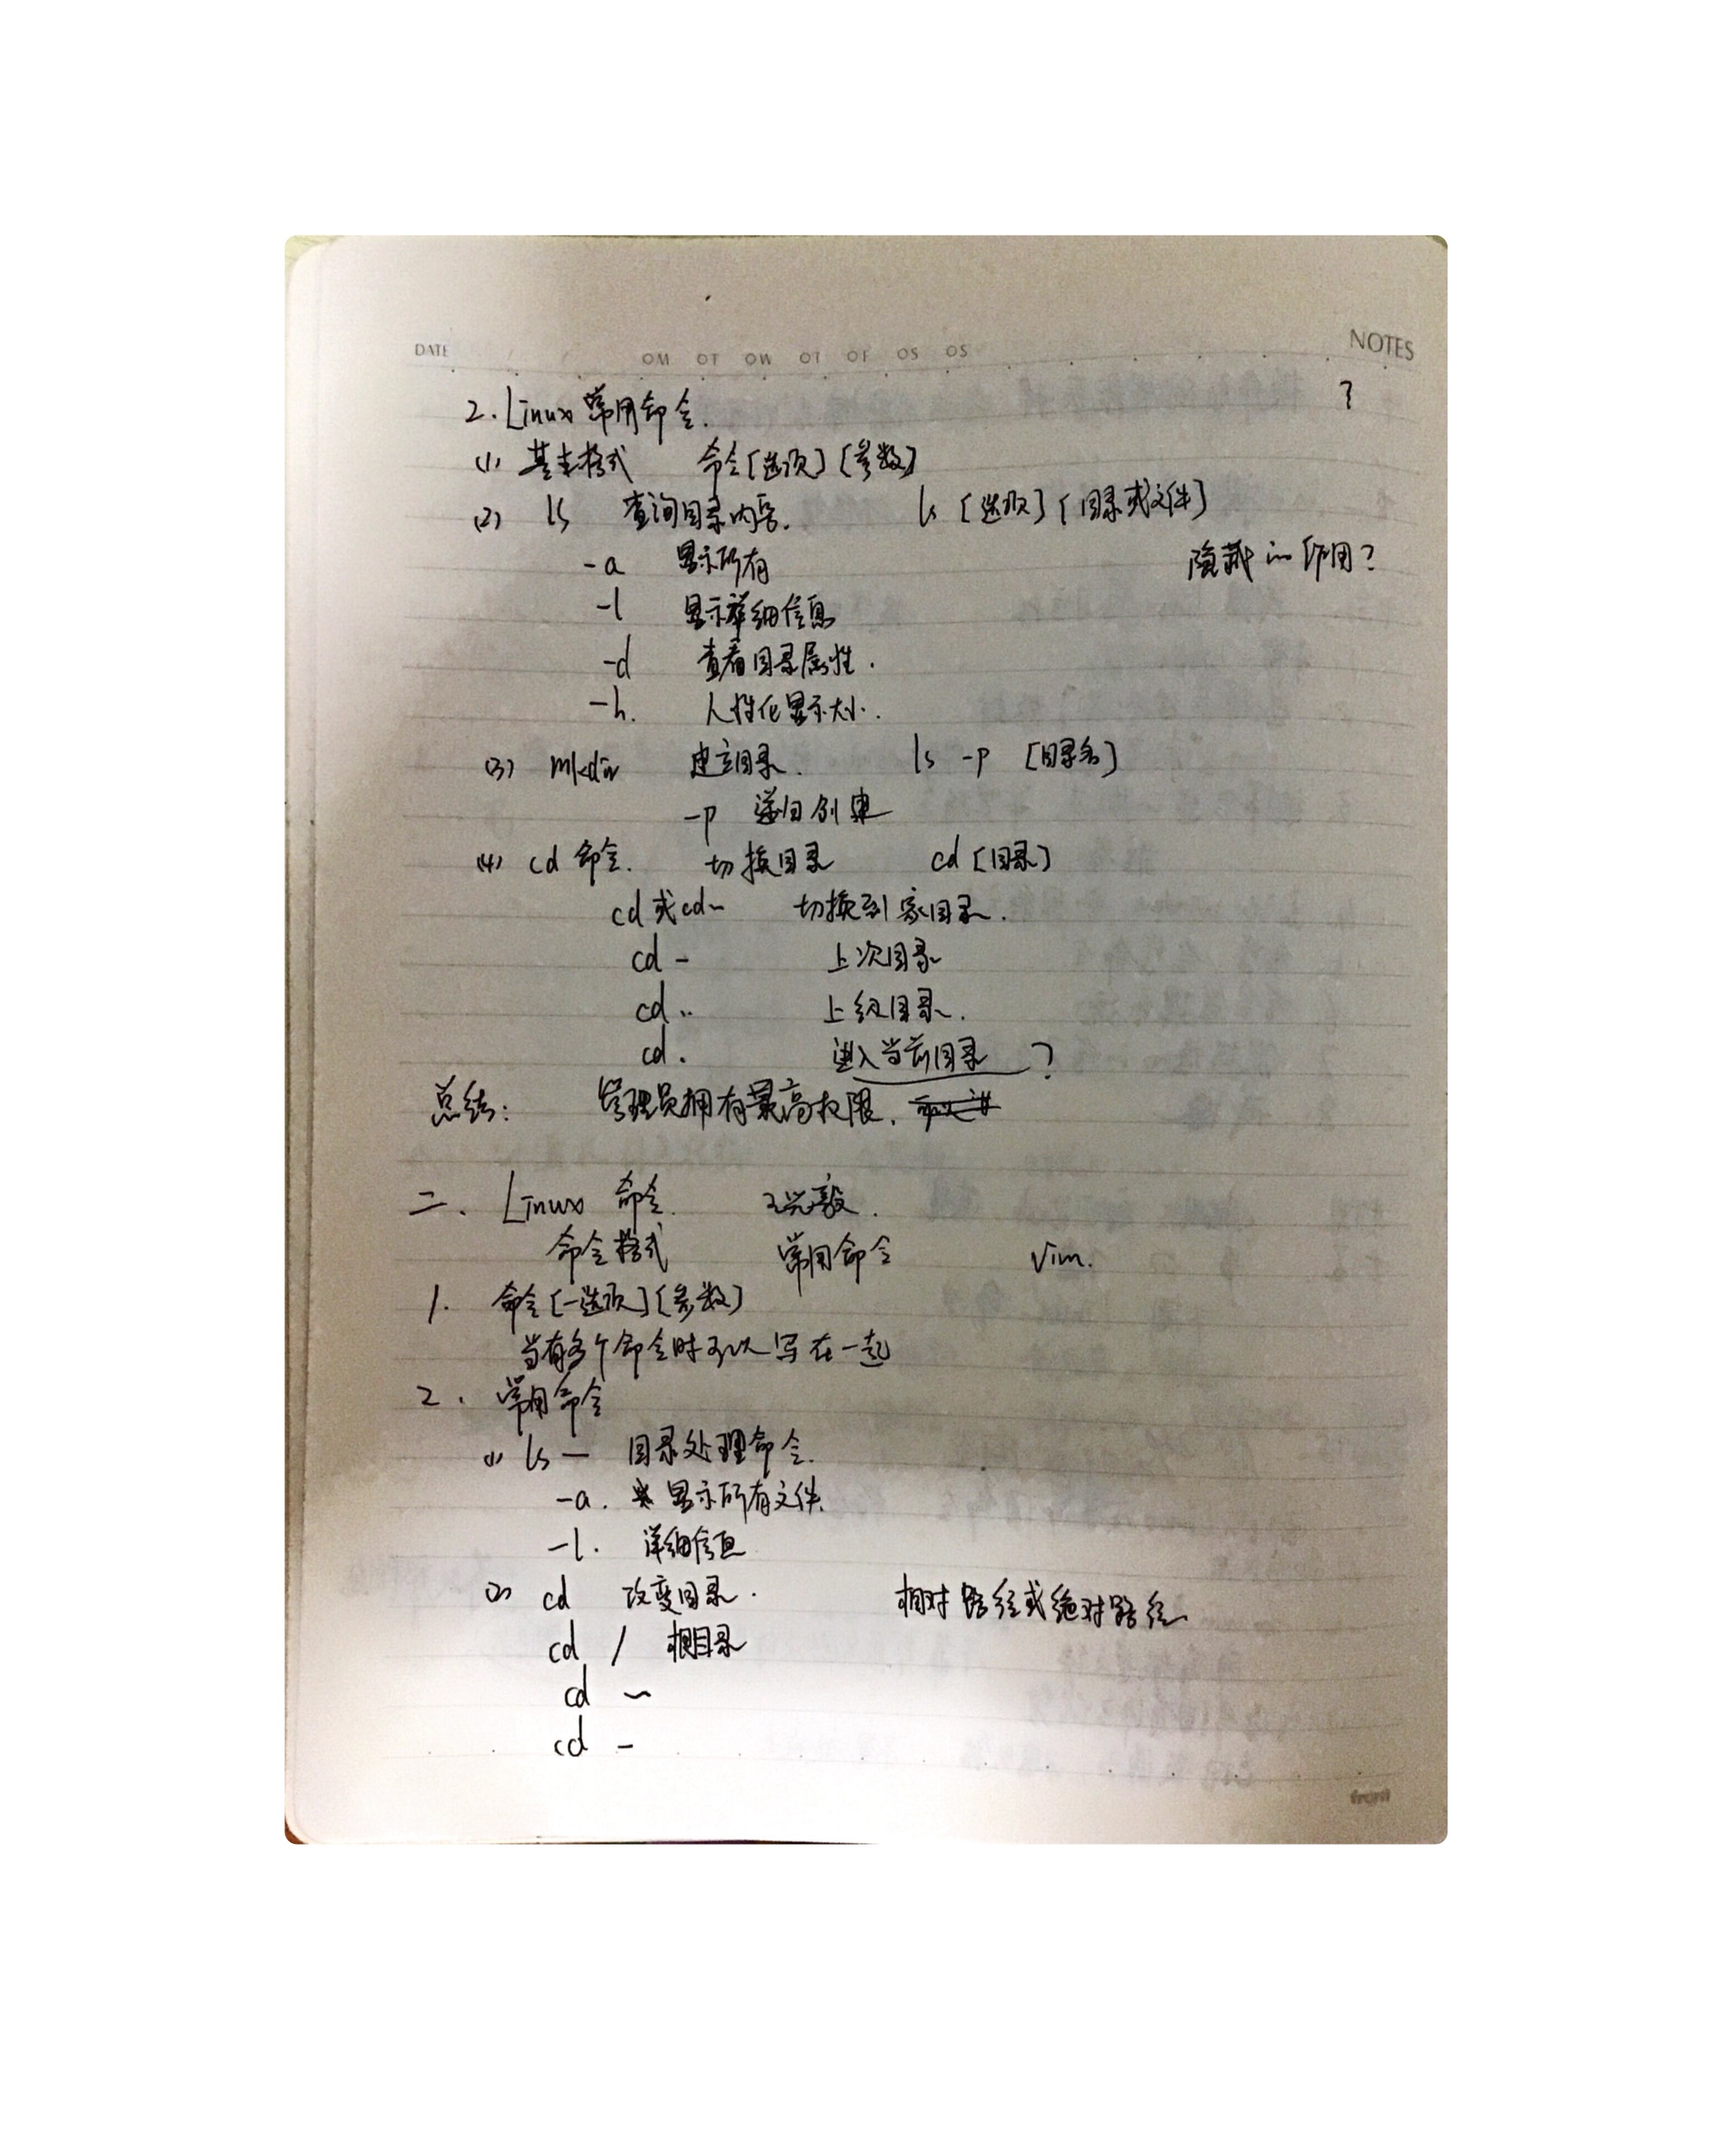 DATE OM OT OW OT OF OS OS NOTES
2. Linux 常用命令. ?
(1) 基本格式 命令[选项][参数]
(2) ls 查询目录内容. ls [选项][目录或文件]
-a 显示所有 隐藏的作用?
-l 显示详细信息
-d 查看目录属性.
-h. 人性化显示大小.
(3) mkdir 建立目录. ls -p [目录名]
-p 递归创建
(4) cd 命令. 切换目录 cd [目录]
cd 或cd~ 切换到家目录.
cd - 上次目录
cd .. 上级目录.
cd . 进入当前目录 ?
总结: 管理员拥有最高权限.
二. Linux 命令.
命令格式 常用命令 Vim.
1. 命令[-选项][参数]
当有多个命令时可以写在一起
2. 常用命令
(1) ls — 目录处理命令.
-a. 显示所有文件.
-l. 详细信息
(2) cd 改变目录. 相对路径或绝对路径.
cd / 根目录
cd ~
cd -
front